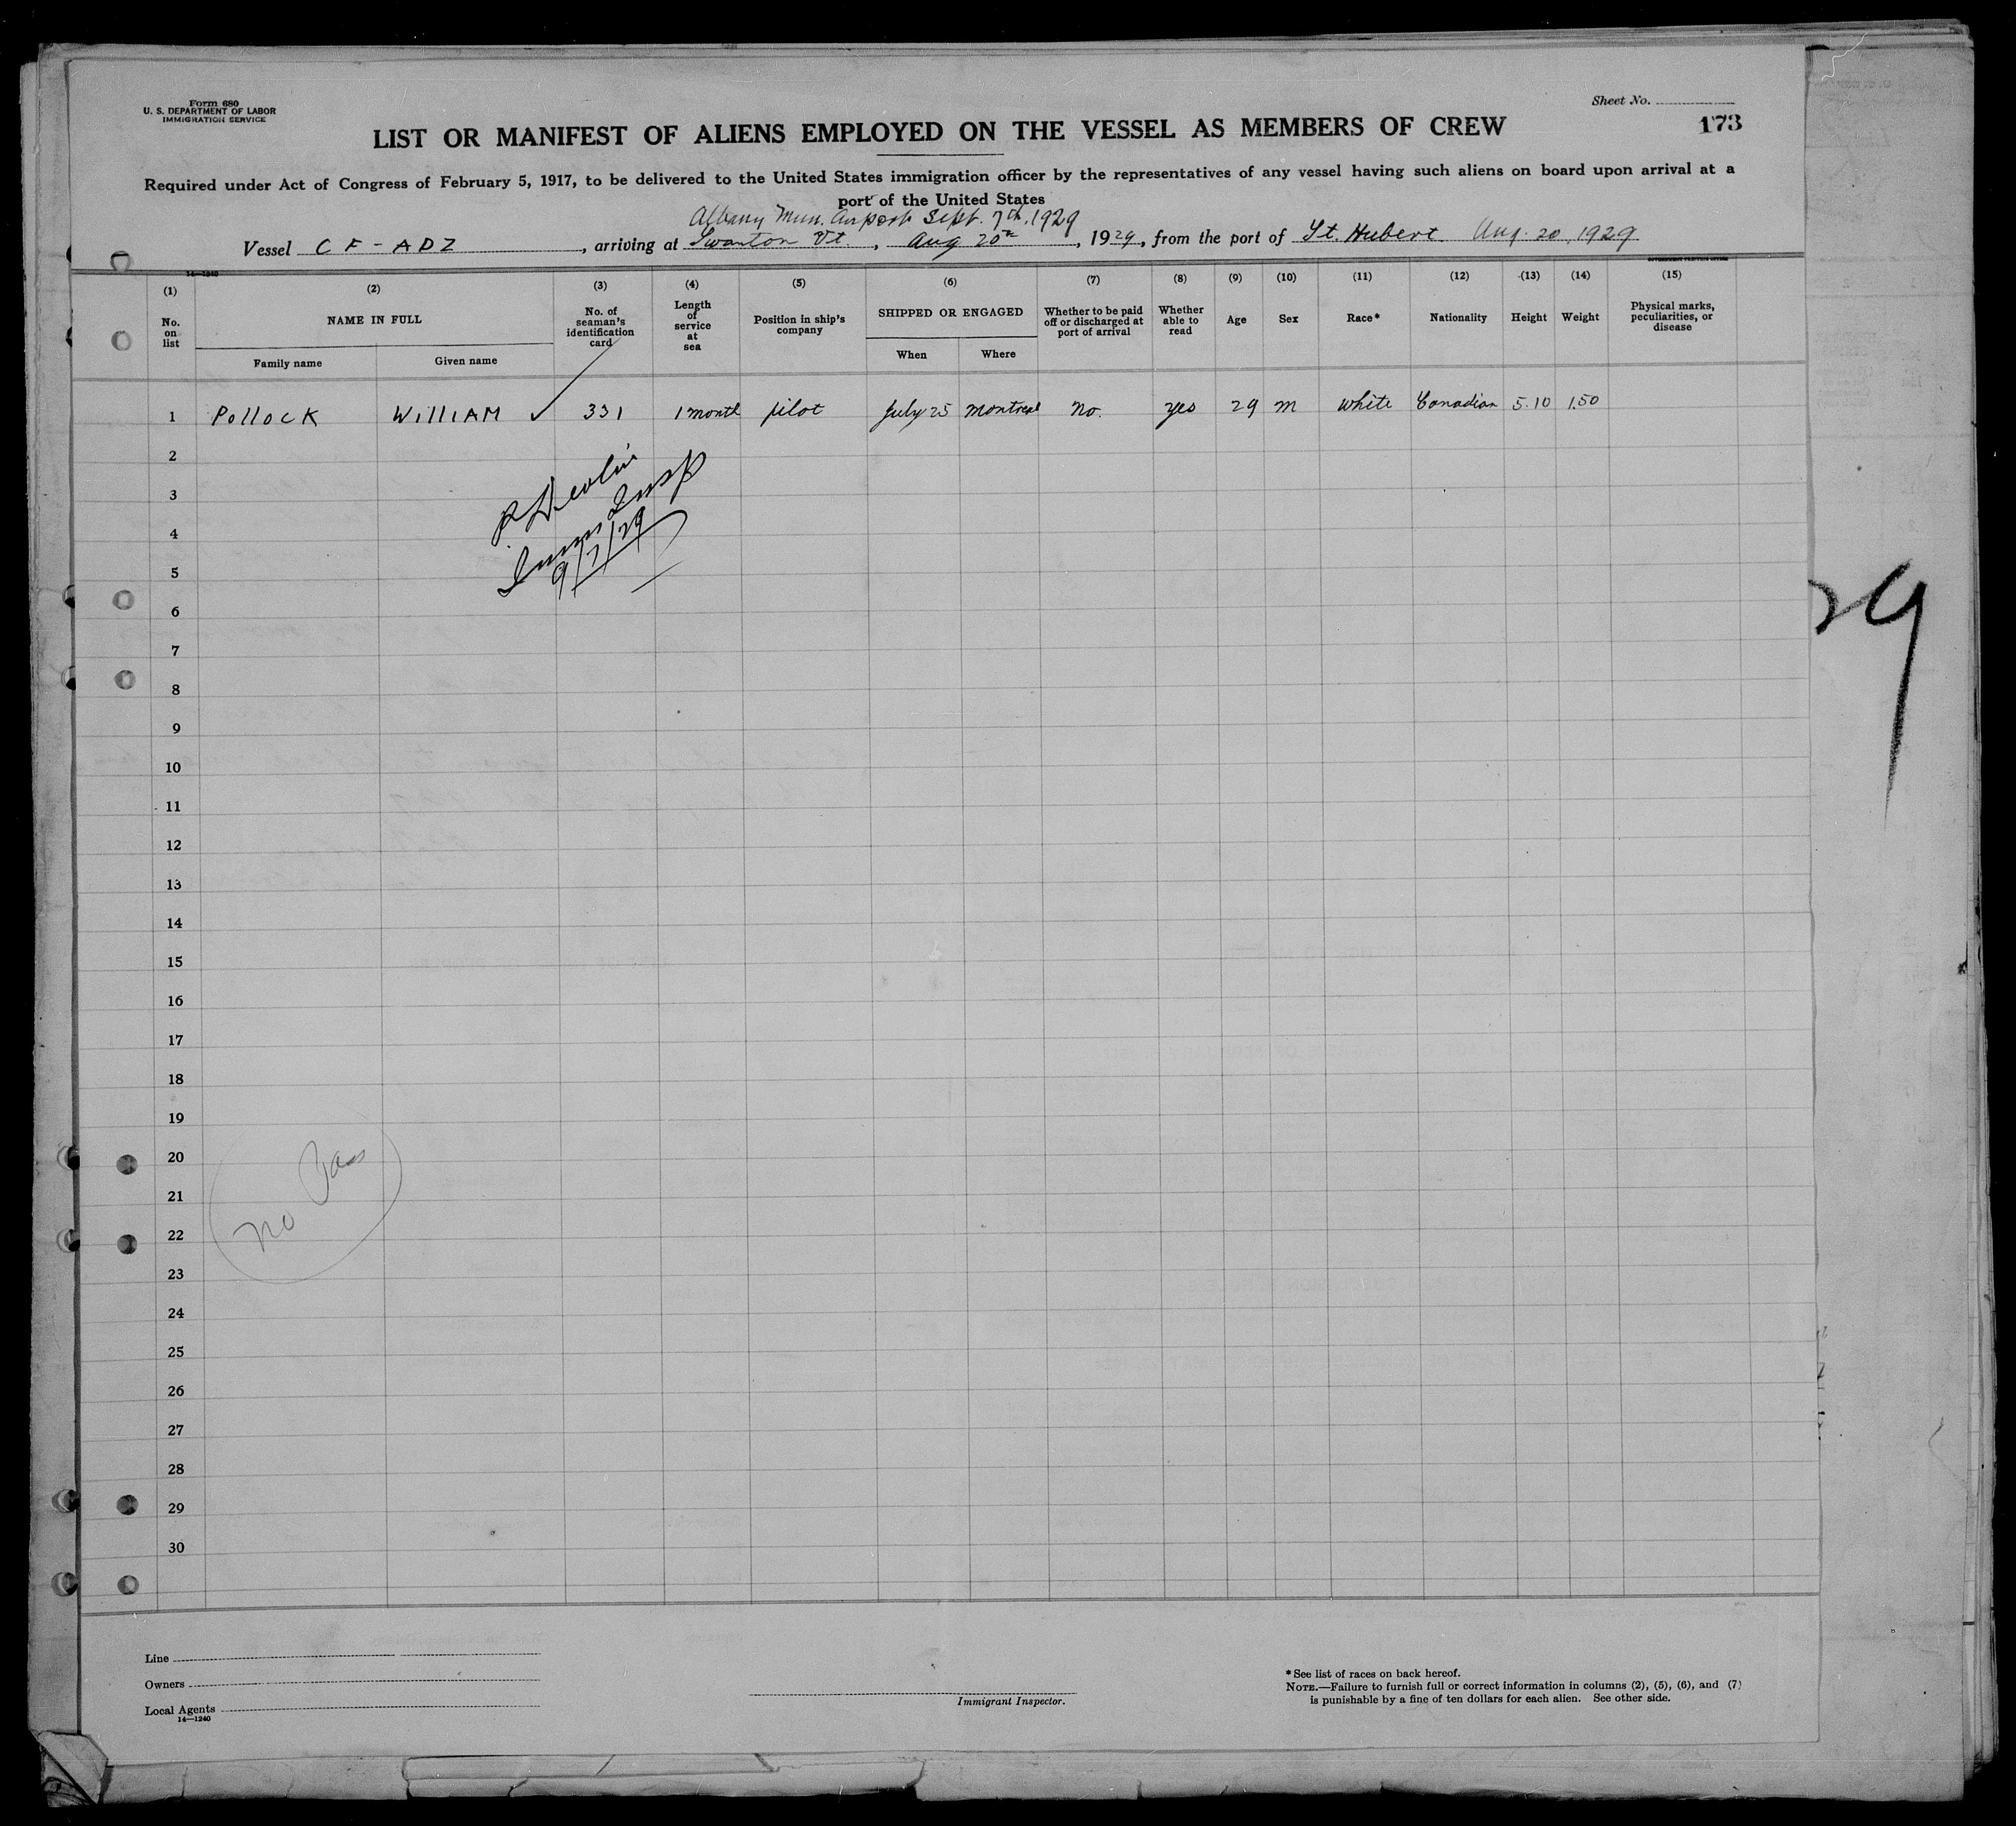 Form 680
U. S. DEPARTMENT OF LABOR
IMMIGRATION SERVICE
Sheet No.
173
LIST OR MANIFEST OF ALIENS EMPLOYED ON THE VESSEL AS MEMBERS OF CREW
Required under Act of Congress of February 5, 1917, to be delivered to the United States immigration officer by the representatives of any vessel having such aliens on board upon arrival at a
port of the United States
Albany Mun. Airport Sept. 7th, 1929
Vessel CF-ADZ, arriving at Swanton Vt., Aug 20th, 1929, from the port of St. Hubert Aug. 20, 1929
14—1240
(1) (2) (3) (4) (5) (6) (7) (8) (9) (10) (11) (12) (13) (14) (15)
No. on list
NAME IN FULL
Family name Given name
No. of seaman's identification card
Length of service at sea
Position in ship's company
SHIPPED OR ENGAGED
When Where
Whether to be paid off or discharged at port of arrival
Whether able to read
Age
Sex
Race*
Nationality
Height
Weight
Physical marks, peculiarities, or disease
1 POLLOCK WILLIAM ✓ 331 1 month pilot July 25 Montreal no. yes 29 M white Canadian 5.10 150
2
3
4
5
6
7
8
9
10
11
12
13
14
15
16
17
18
19
20
21
22
23
24
25
26
27
28
29
30
Devlin
Immig Insp
9/7/29
No Pass
29
Line
Owners
Local Agents
14—1240
Immigrant Inspector.
* See list of races on back hereof.
NOTE.—Failure to furnish full or correct information in columns (2), (5), (6), and (7)
is punishable by a fine of ten dollars for each alien. See other side.